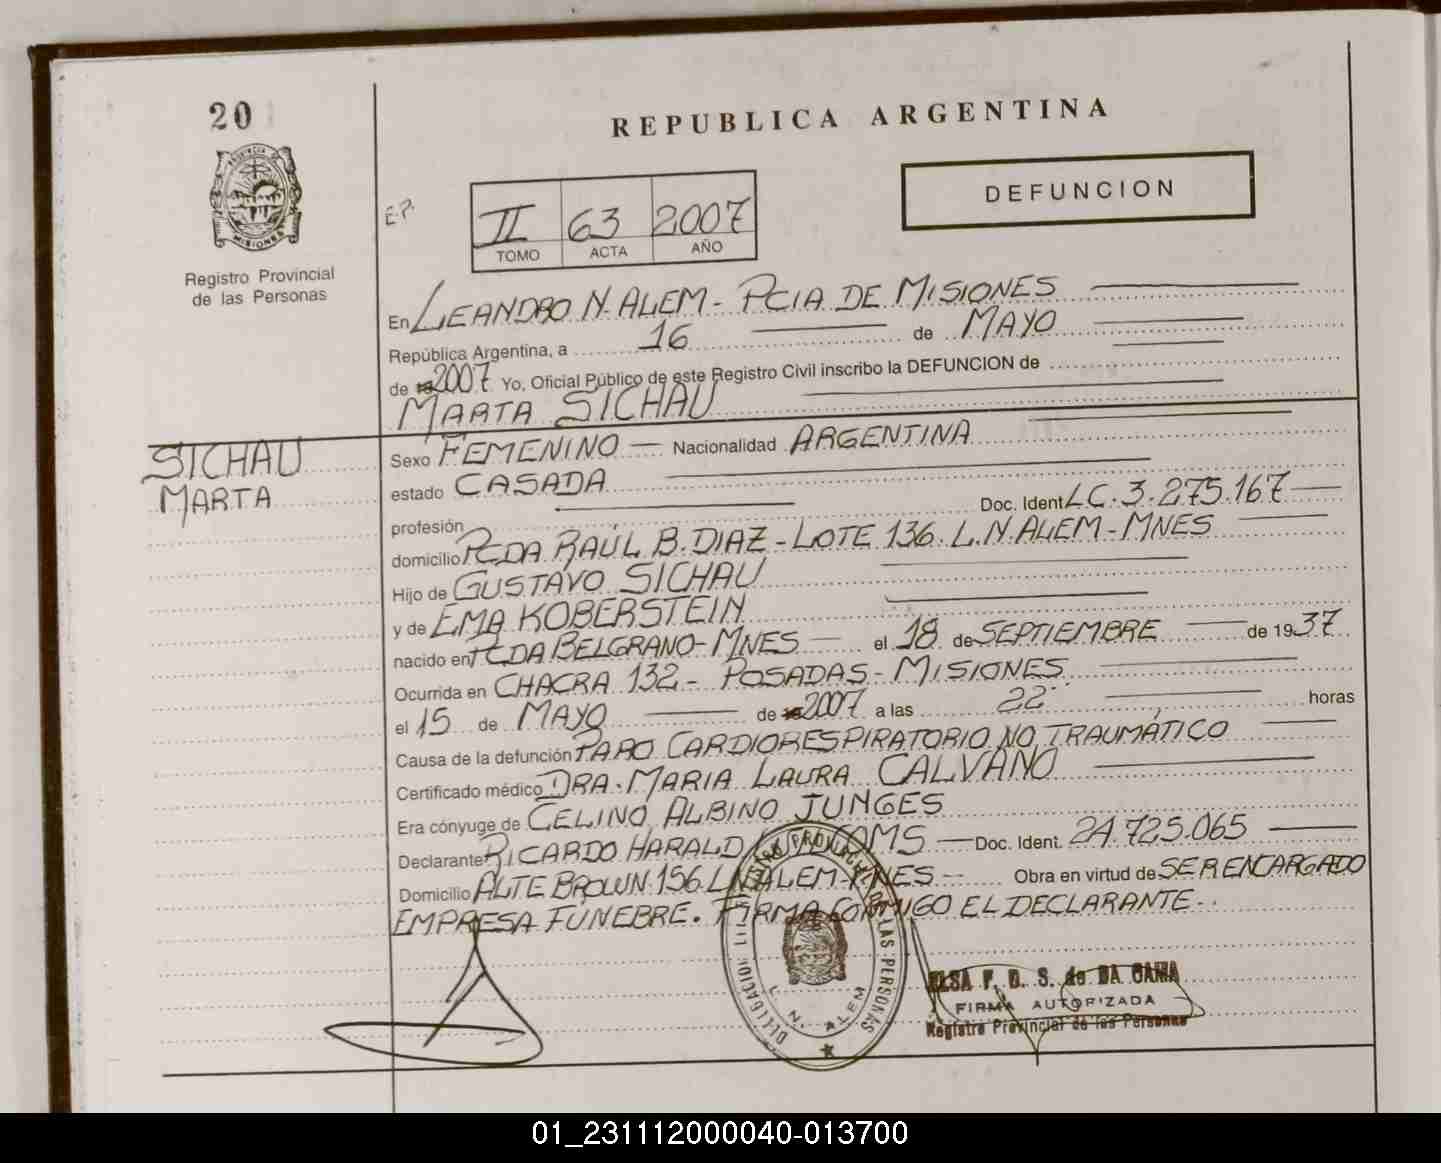 20
REPUBLICA ARGENTINA
PROVINCIA DE
MISIONES
DEFUNCION
E.P.
II 63 2007
TOMO ACTA AÑO
Registro Provincial
de las Personas
En LEANDRO N. ALEM - PCIA DE MISIONES
República Argentina, a 16 de MAYO
de 2007 Yo, Oficial Público de este Registro Civil inscribo la DEFUNCION de
MARTA SICHAU
SICHAU
MARTA
Sexo FEMENINO — Nacionalidad ARGENTINA
estado CASADA
profesión Doc. Ident LC. 3.275.167
domicilio PCDA RAÚL B. DIAZ - LOTE 136. L.N. ALEM - MNES
Hijo de GUSTAVO SICHAU
y de EMA KOBERSTEIN
nacido en PCDA BELGRANO - MNES el 18 de SEPTIEMBRE de 1937
Ocurrida en CHACRA 132 - POSADAS - MISIONES
el 15 de MAYO de 2007 a las 22 horas
Causa de la defunción PARO CARDIORESPIRATORIO NO TRAUMÁTICO
Certificado médico DRA. MARIA LAURA CALVANO
Era cónyuge de CELINO ALBINO JUNGES
Declarante RICARDO HARALD — Doc. Ident. 24.725.065
Domicilio ALTE BROWN 156 L.N. ALEM - MNES — Obra en virtud de SER ENCARGADO
EMPRESA FUNEBRE. FIRMA CONMIGO EL DECLARANTE.
REGISTRO PROVINCIAL DE LAS PERSONAS
DELEGACION
L. N. ALEM
ELSA F. D. S. de DA GAMA
FIRMA AUTORIZADA
Registro Provincial de las Personas
01_231112000040-013700